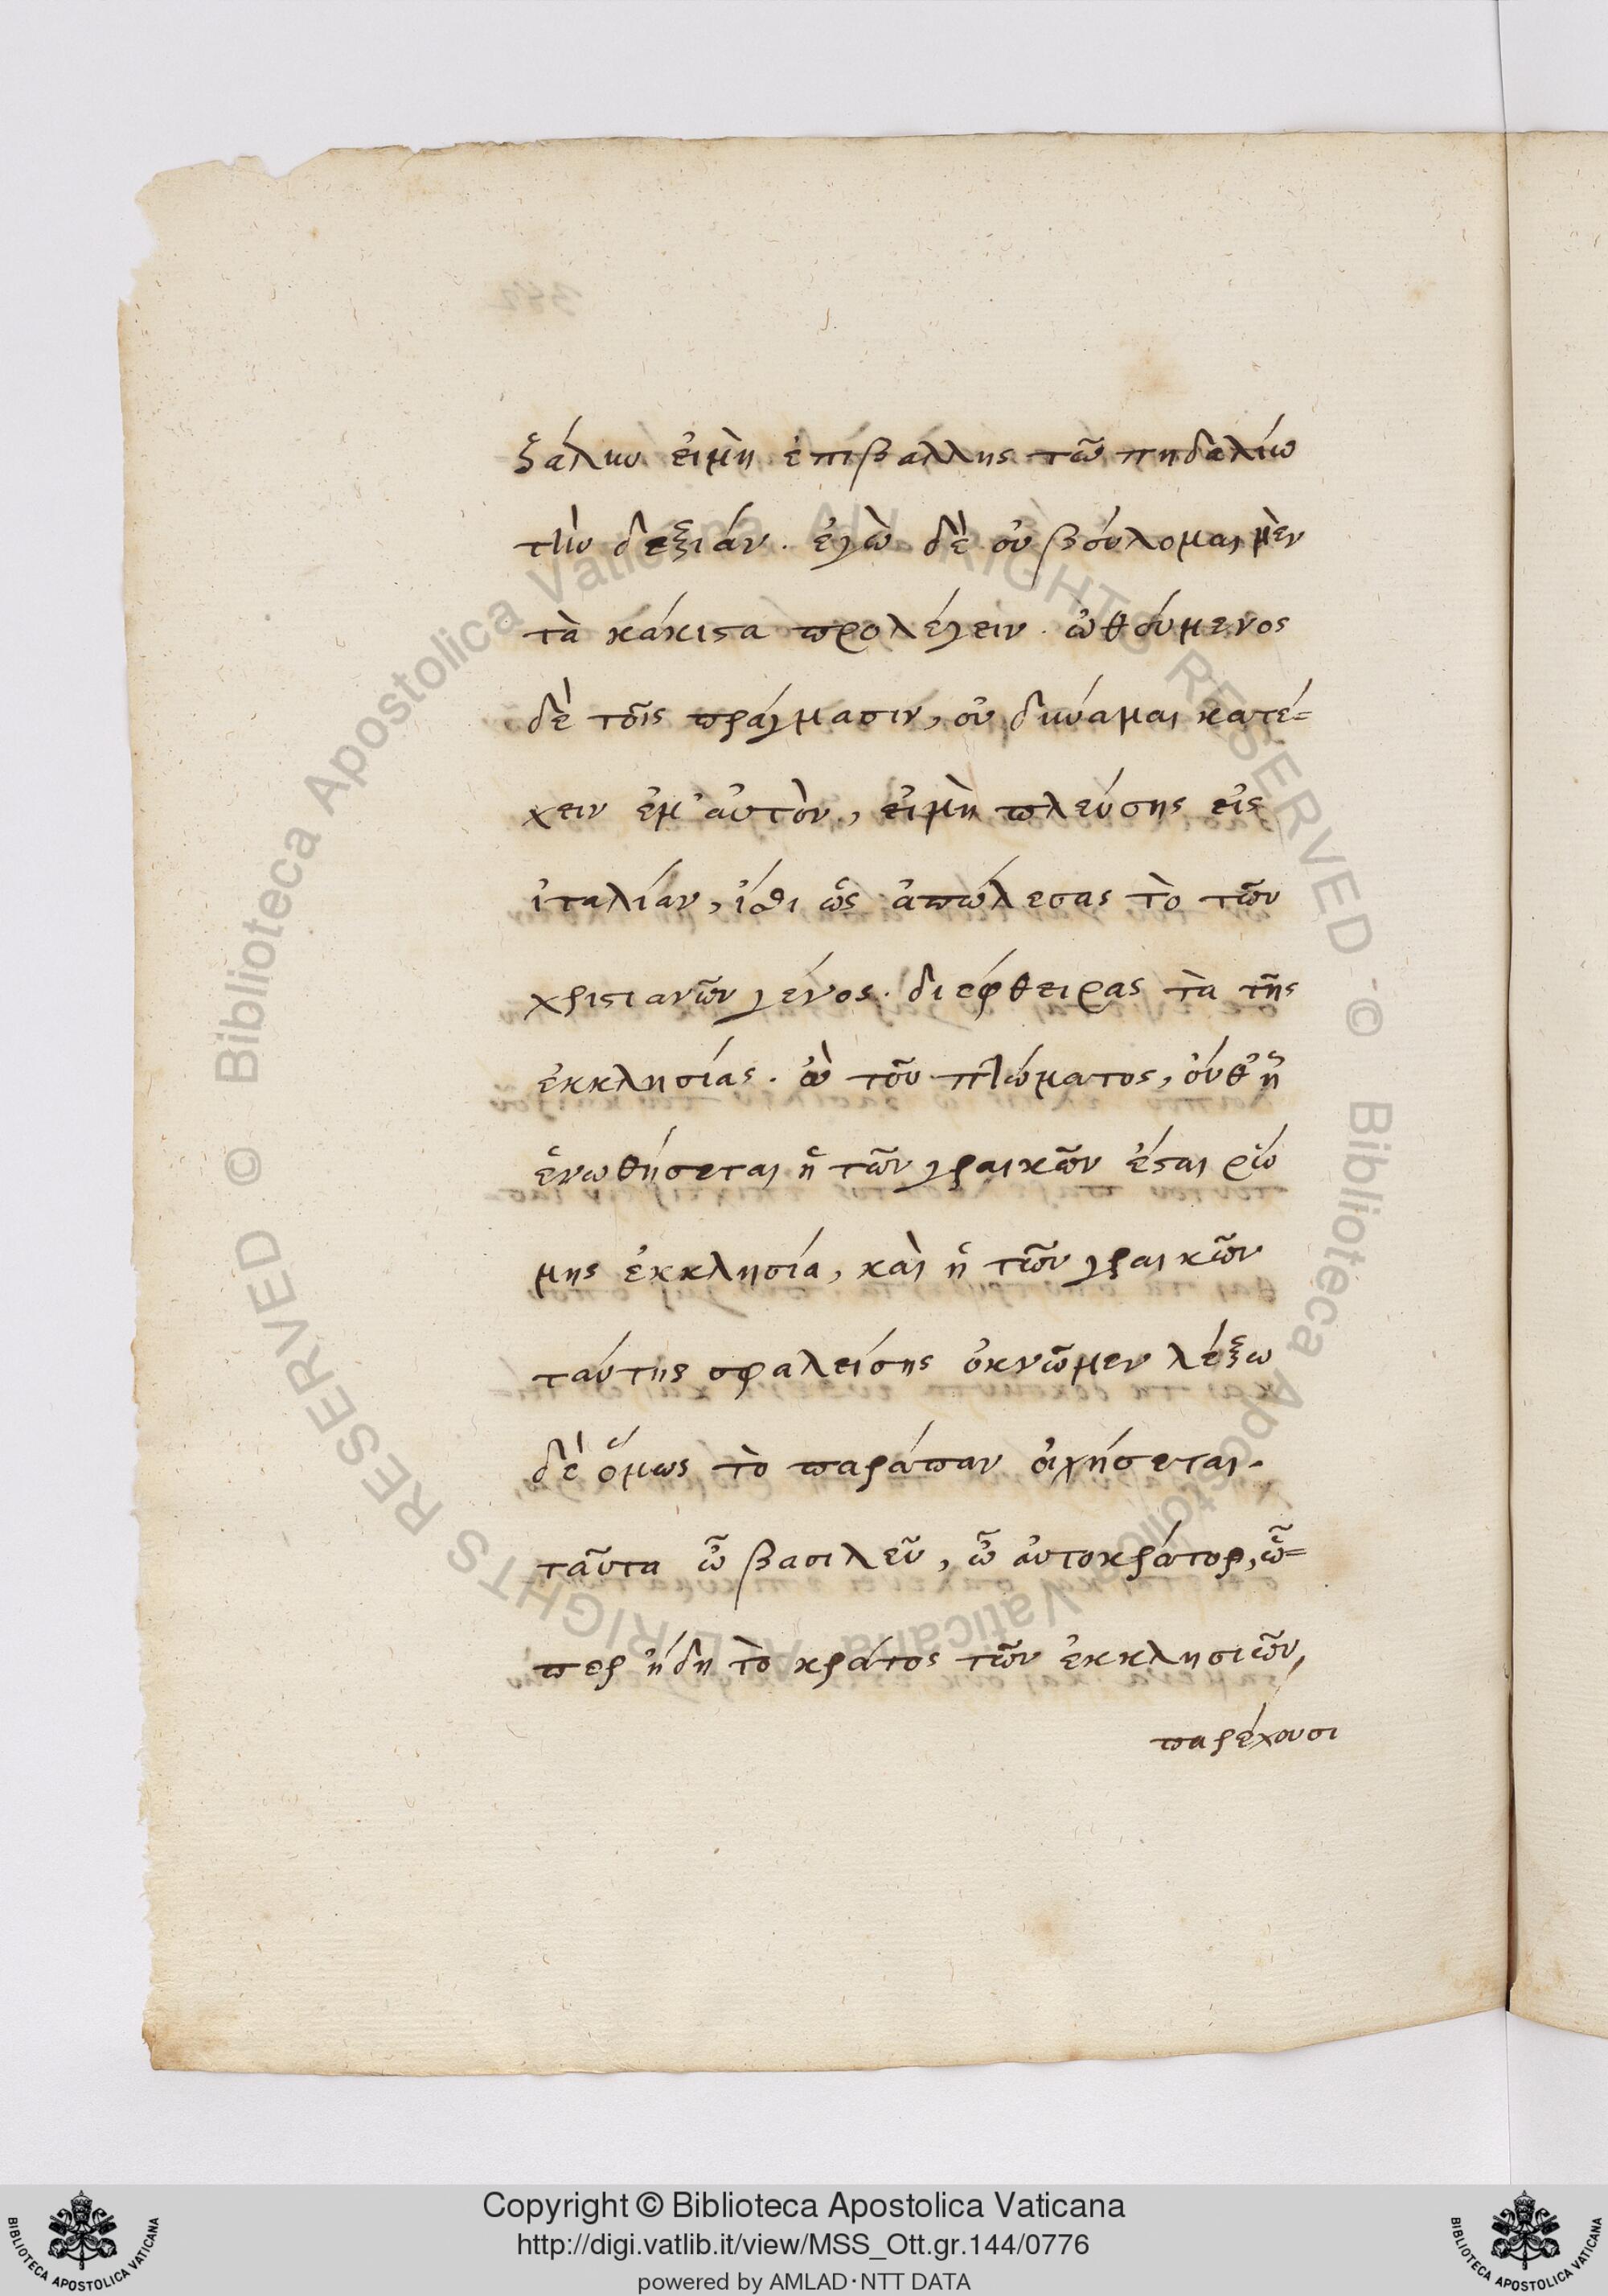 ζάλην εἰμὴ ἐπιβάλλης τῶ πηδαλίω
τὴν δεξιάν. ἐγὼ δὲ οὐ βούλομαι μὲν
τὰ κάκιστα προλέγειν. ὠθούμενος
δὲ τοῖς πράγμασιν, οὐ δύναμαι κατέ=
χειν ἐμ' αὐτὸν, εἰμὴ πλεύσης εἰς
ἰταλίαν, ἴσθι ὡς ἀπώλεσας τὸ τῶν
χριστιανῶν γένος. διέφθειρας τὰ τῆς
ἐκκλησίας. ὢ τοῦ πτώματος, οὔθ' ἡ
ἑνωθήσεται ἡ τῶν γραικῶν ἔσται ῥώ
μης ἐκκλησία, καὶ ἡ τῶν γραικῶν
ταύτης σφαλείσης ὀκνῶμεν λέξω
δὲ ὅμως τὸ παράπαν οἰχήσεται.
ταῦτα ὦ βασιλεῦ, ὦ αὐτοκράτορ, ὧ=
περ ἤδη τὸ κράτος τῶν ἐκκλησιῶν,
παρέχουσι
Copyright © Biblioteca Apostolica Vaticana
http://digi.vatlib.it/view/MSS_Ott.gr.144/0776
powered by AMLAD·NTT DATA